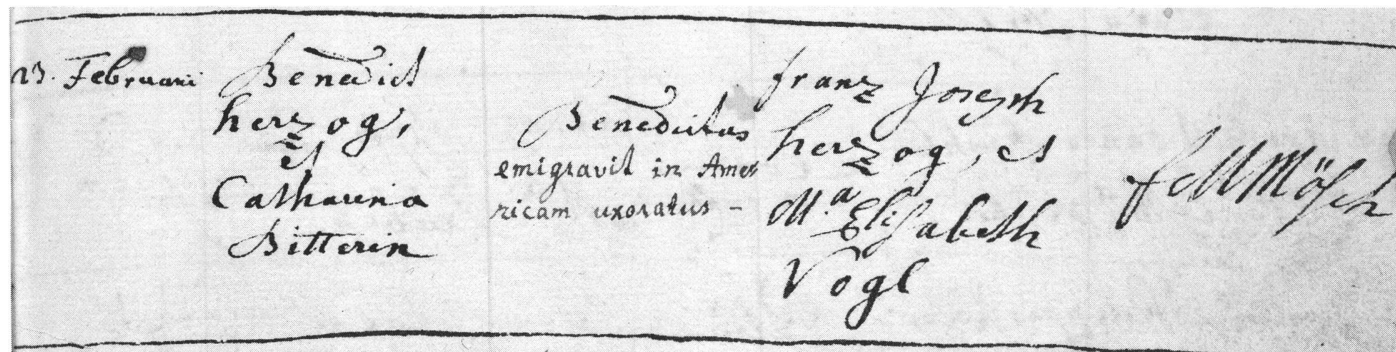 23. Februarii
Benedict
herzog,
et
Catharina
Bitterin
Benedictus
emigravit in Ame-
ricam uxoratus -
franz Joseph
herzog, et
M.a Elisabeth
Vogl